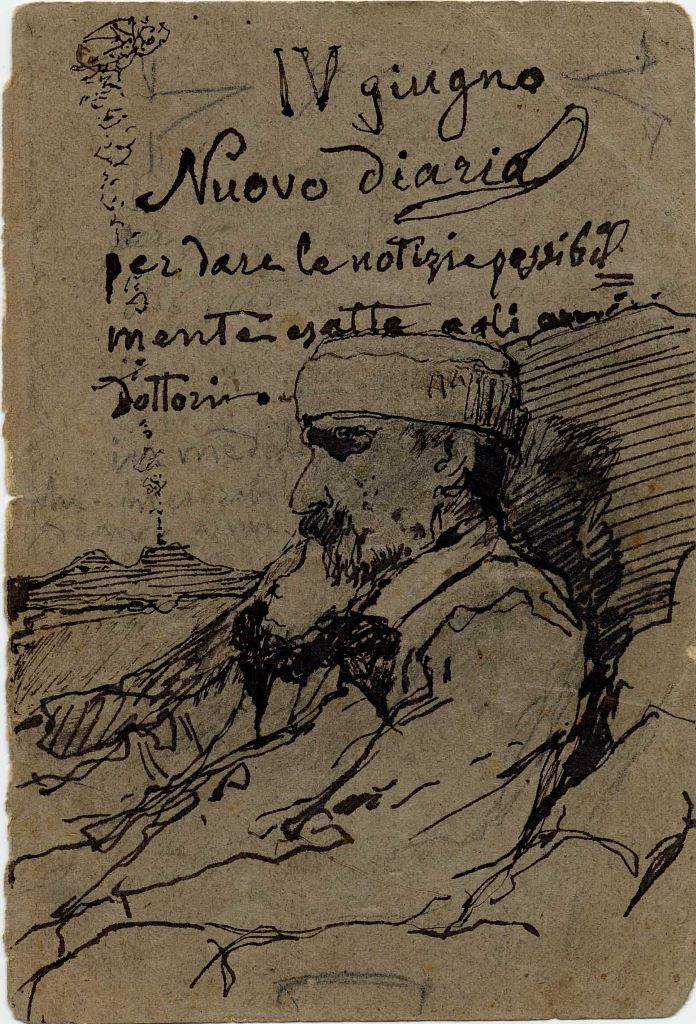 IV giugno
Nuovo diario
per dare le notizie possibil
mente esatte agli amici
dottori.
in